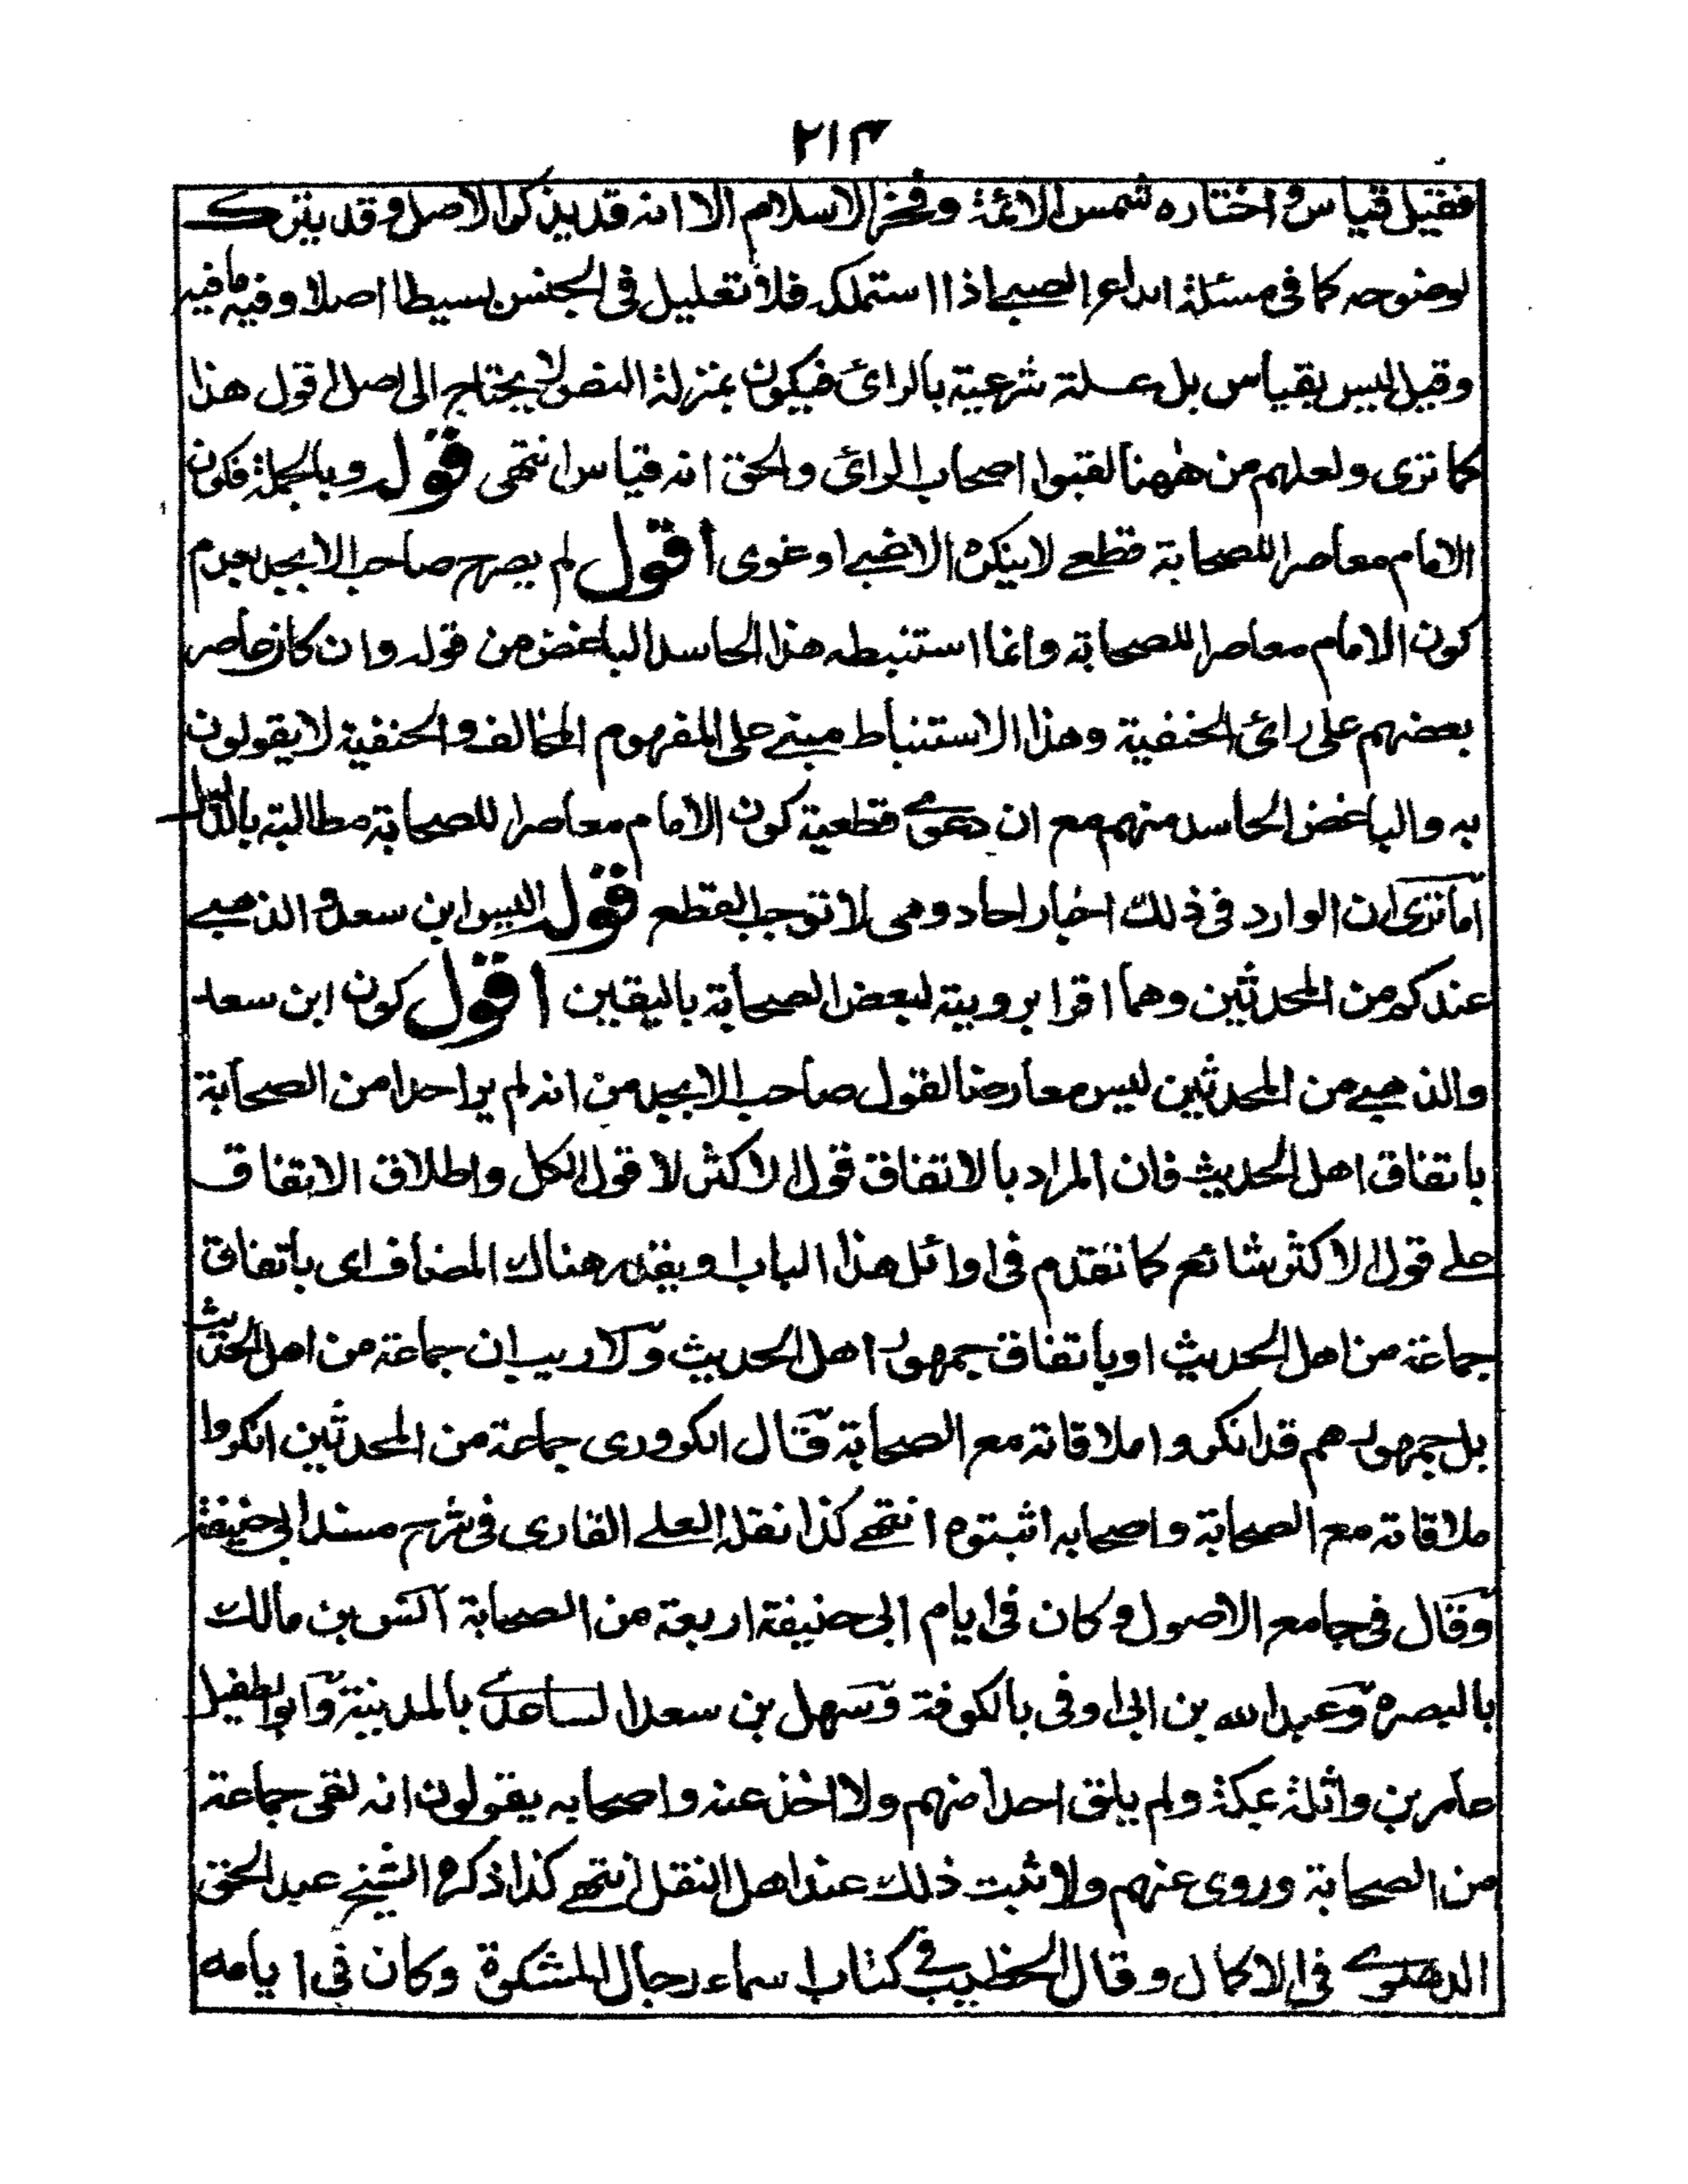 ٢١٣
فقيل قياس واختاره شمس الائمة وفخر الاسلام الا انه قد يذكر الاصل وقد يترك
لوضوحه كما فى مسئلة ايداع الصبى اذا استهلكه فلا تعليل فى الجنس بسيطا اصلا وفيه ما فيه
وقيل ليس بقياس بل علة شرعية بالرائ فيكون بمنزلة النص لا يحتاج الى اصل اقول هذا
كما ترى ولعلهم من ههنا لقبوا اصحاب الرائ والحق انه قياس انتهى قوله وبالجملة فكون
الامام معاصرا للصحابة قطعے لاينكره الا غبى او غوى اقول لم يصرح صاحب الابجد بعدم
كون الامام معاصرا للصحابة وانما استنبطه هذا الحاسد الباغض من قوله وان كان عاصر
بعضهم على رائ الحنفية وهذا الاستنباط مبنے على المفهوم المخالف والحنفية لا يقولون
به والباغض الحاسد منهم مع ان دعوے قطعية كون الامام معاصرا للصحابة مطالبة بالدليل
اما ترى ان الوارد فى ذلك اخبار احاد وهى لا توجب القطع قوله اليس ابن سعد والذهبے
عندكم من المحدثين وهما اقرا بروية لبعض الصحابة باليقين اقول كون ابن سعد
والذهبے من المحدثين ليس معارضا لقول صاحب الابجد من انه لم ير احدا من الصحابة
باتفاق اهل الحديث فان المراد بالاتفاق قول الاكثر لا قول الكل واطلاق الاتفاق
علے قول الاكثر شائع كما تقدم فى اوائل هذا الباب او يقدر هناك المضاف اى باتفاق
جماعة من اهل الحديث او باتفاق جمهور اهل الحديث ولا ريب ان جماعة من اهل الحديث
بل جمهورهم قد انكروا ملاقاته مع الصحابة قال الكرورى جماعة من المحدثين انكروا
ملاقاته مع الصحابة واصحابه اثبتوه انتهے كذا نقله العلے القارى فى شرح مسند ابى حنيفة
وقال فى جامع الاصول وكان فى ايام ابى حنيفة اربعة من الصحابة انس بن مالك
بالبصره وعبد الله بن ابى اوفى بالكوفة وسهل بن سعد الساعدے بالمدينة وابو الطفيل
عامر بن واثلة بمكة ولم يلق احدا منهم ولا اخذ عنه واصحابه يقولون انه لقى جماعة
من الصحابة وروى عنهم ولا ثبت ذلك عند اهل النقل انتهے كذا ذكره الشيخ عبد الحق
الدهلوے فى الاكمال وقال الخطيب فے كتاب اسماء رجال المشكوة وكان فى ايامه